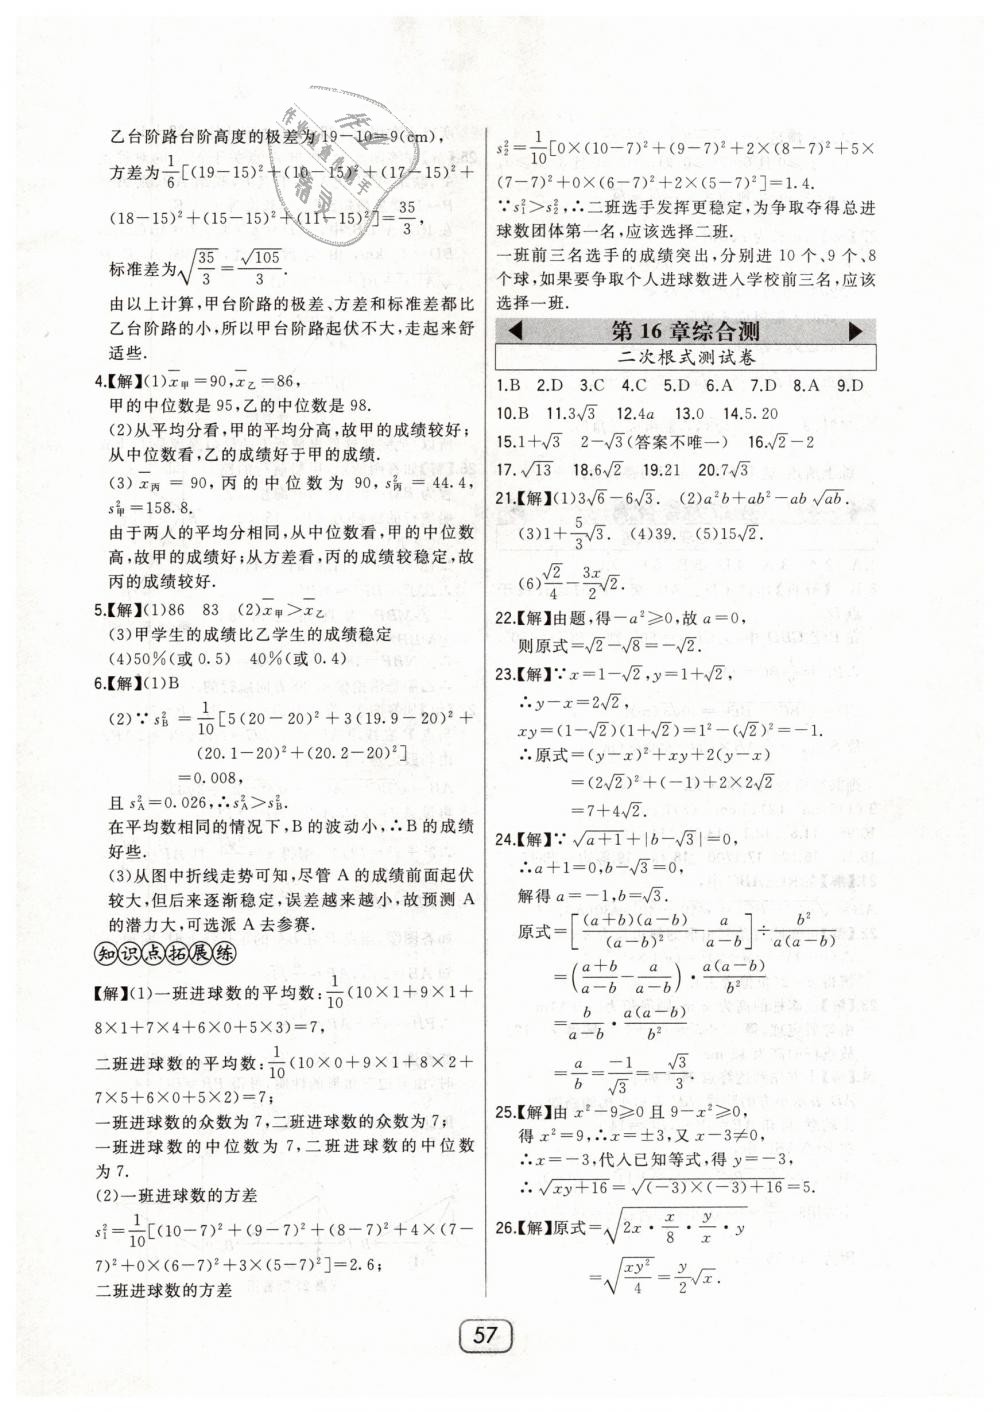 乙台阶路台阶高度的极差为19-10=9(cm),
方差为1/6[(19-15)²+(10-15)²+(17-15)²+
(18-15)²+(15-15)²+(11-15)²]=35/3,
标准差为√(35/3)=√105/3.
由以上计算,甲台阶路的极差、方差和标准差都比
乙台阶路的小,所以甲台阶路起伏不大,走起来舒
适些.
4.【解】(1)x̄甲=90,x̄乙=86,
甲的中位数是95,乙的中位数是98.
(2)从平均分看,甲的平均分高,故甲的成绩较好;
从中位数看,乙的成绩好于甲的成绩.
(3) x̄丙=90,丙的中位数为90,s²丙=44.4,
s²甲=158.8.
由于两人的平均分相同,从中位数看,甲的中位数
高,故甲的成绩好;从方差看,丙的成绩较稳定,故
丙的成绩较好.
5.【解】(1)86 83 (2)x̄甲>x̄乙
(3)甲学生的成绩比乙学生的成绩稳定
(4)50%(或0.5) 40%(或0.4)
6.【解】(1)B
(2)∵s²B=1/10[5(20-20)²+3(19.9-20)²+
(20.1-20)²+(20.2-20)²]
=0.008,
且s²A=0.026,∴s²A>s²B.
在平均数相同的情况下,B的波动小,∴B的成绩
好些.
(3)从图中折线走势可知,尽管A的成绩前面起伏
较大,但后来逐渐稳定,误差越来越小,故预测A
的潜力大,可选派A去参赛.
知识点拓展练
【解】(1)一班进球数的平均数:1/10(10×1+9×1+
8×1+7×4+6×0+5×3)=7,
二班进球数的平均数:1/10(10×0+9×1+8×2+
7×5+6×0+5×2)=7;
一班进球数的众数为7,二班进球数的众数为7;
一班进球数的中位数为7,二班进球数的中位数
为7.
(2)一班进球数的方差
s₁²=1/10[(10-7)²+(9-7)²+(8-7)²+4×(7-
7)²+0×(6-7)²+3×(5-7)²]=2.6;
二班进球数的方差
s₂²=1/10[0×(10-7)²+(9-7)²+2×(8-7)²+5×
(7-7)²+0×(6-7)²+2×(5-7)²]=1.4.
∵s₁²>s₂²,∴二班选手发挥更稳定,为争取夺得总进
球数团体第一名,应该选择二班.
一班前三名选手的成绩突出,分别进10个、9个、8
个球,如果要争取个人进球数进入学校前三名,应该
选择一班.
第16章综合测
二次根式测试卷
1.B 2.D 3.C 4.C 5.D 6.A 7.D 8.A 9.D
10.B 11.3√3 12.4a 13.0 14.5.20
15.1+√3 2-√3(答案不唯一) 16.√2-2
17.√13 18.6√2 19.21 20.7√3
21.【解】(1)3√6-6√3. (2)a²b+ab²-ab√ab.
(3)1+5/3√3. (4)39. (5)15√2.
(6)√2/4-3x/2√2.
22.【解】由题,得-a²≥0,故a=0,
则原式=√2-√8=-√2.
23.【解】∵x=1-√2,y=1+√2,
∴y-x=2√2,
xy=(1-√2)(1+√2)=1²-(√2)²=-1.
∴原式=(y-x)²+xy+2(y-x)
=(2√2)²+(-1)+2×2√2
=7+4√2.
24.【解】∵√(a+1)+|b-√3|=0,
∴a+1=0,b-√3=0,
解得a=-1,b=√3.
原式=[(a+b)(a-b)/(a-b)²-a/(a-b)]÷b²/a(a-b)
=((a+b)/(a-b)-a/(a-b))·a(a-b)/b²
=b/(a-b)·a(a-b)/b²
=a/b=-1/√3=-√3/3.
25.【解】由x²-9≥0且9-x²≥0,
得x²=9,∴x=±3,又x-3≠0,
∴x=-3,代人已知等式,得y=-3,
∴√(xy+16)=√((-3)×(-3)+16)=5.
26.【解】原式=√(2x·x/8·y/x·y)
=√(xy²/4)=y/2√x.
57